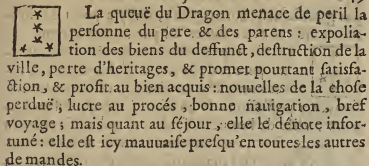 La queuë du Dragon menace de peril la
perſonne du pere & des parens : expolia-
tion des biens du deffunct, deſtruction de la
ville, perte d'heritages, & promet pourtant ſatisfa-
ction, & profit au bien acquis : nouuelles de la choſe
perduë ; lucre au procés, bonne nauigation, bref
voyage ; mais quant au ſéjour, elle le dénote infor-
tuné : elle eſt icy mauuaiſe preſqu'en toutes les autres
de mandes.